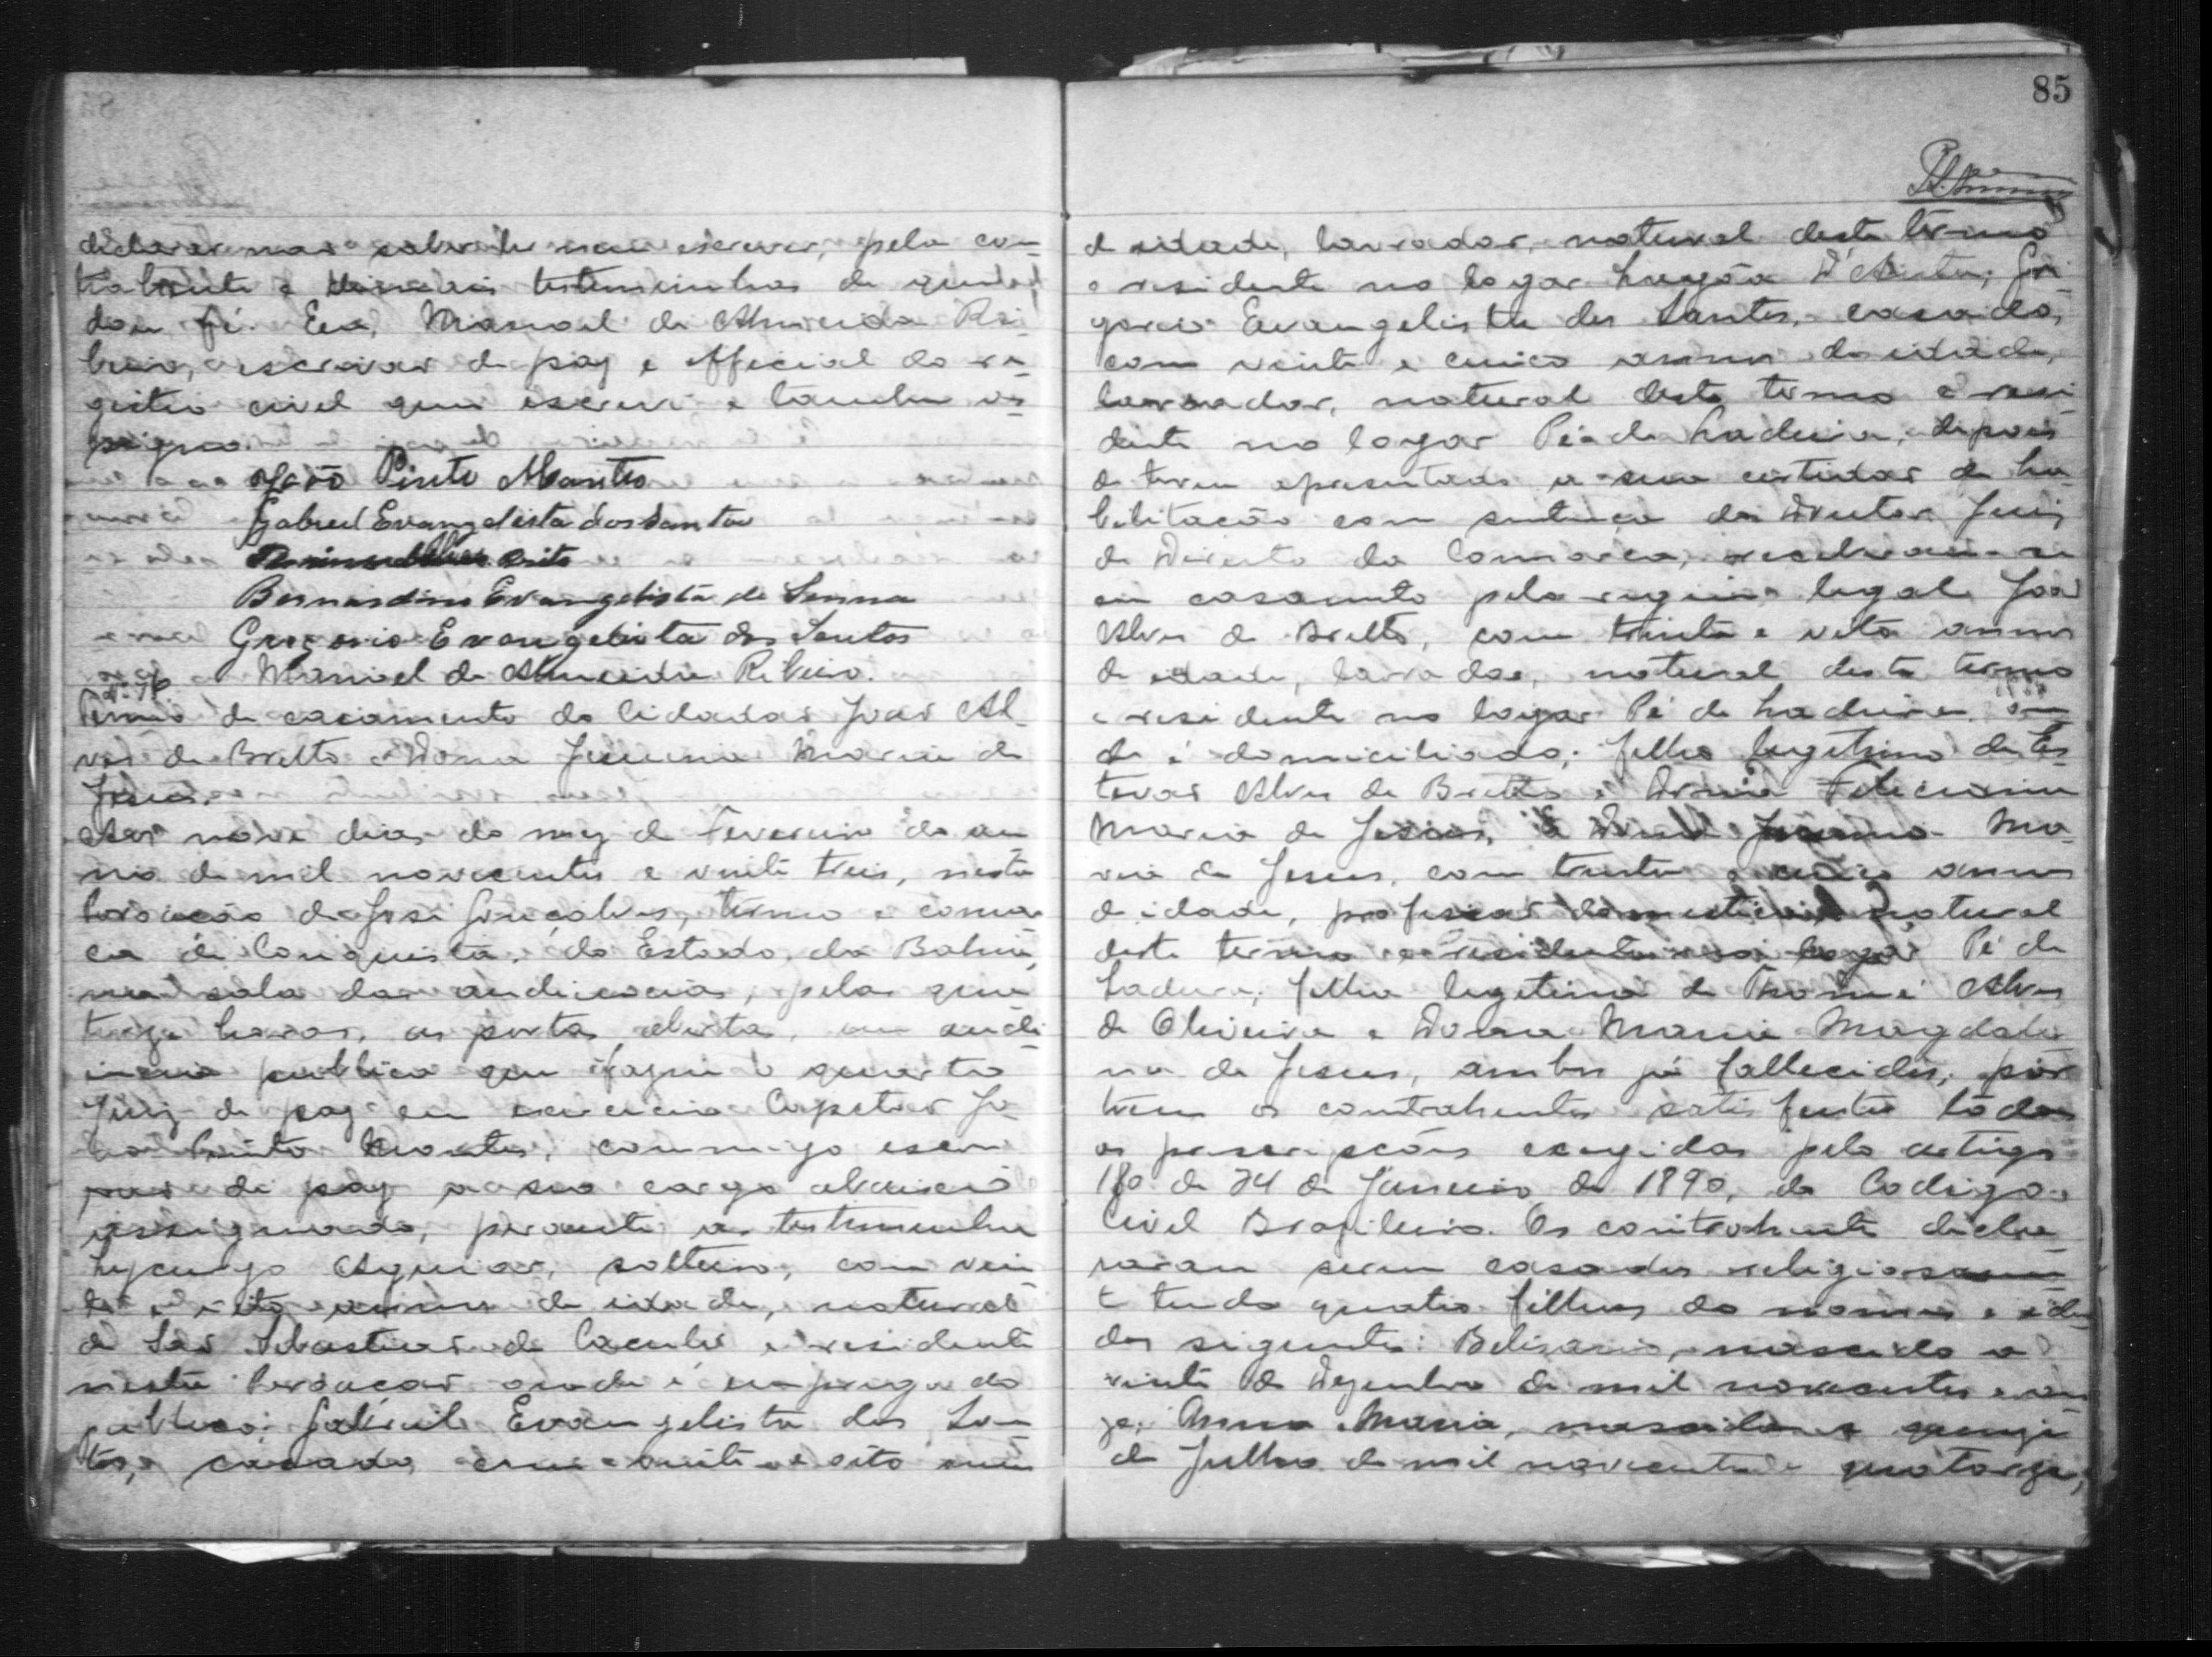 declarar nao saber ler nem escrever, pela con-
trahente e demais testemunhas de que
dou fé. Eu, Manoel de Almeida Ri-
beiro, escrivao de paz e official do re-
gistro civel que escrevi e tambem as-
signo.
João Pinto Martes
Gabriel Evangelista dos Santos
Brito
Bernardino Evangelista de Senna
Gregorio Evangelista dos Santos
Manoel de Almeida Ribeiro.
Termo de casamento do Cidadao Joao Al-
ves de Britto e Dona Maria de
Jesus.
Aos nove dias do mez de Fevereiro do an-
no de mil novecentos e vinte treis, nesta
Povoacão de José Gonçalves, termo e comar-
ca de Conquista, do Estado da Bahia,
na sala das audiencias, pelas qua-
torze horas, as portas abertas, em audi-
encia publica que fazia o quarto
Juiz de paz em exercicio Capitao Jo-
ão Pinto Martes, commigo escri-
vao de paz a seu cargo abaixo
assignado, perante as testemunhas
Aguiar, solteiro, com vin-
te e oito annos de idade, natural
de Sao Sebastiao do Caculé e residente
nesta Povoacao onde é empregado
publico; Gabriel Evangelista dos San-
tos, casado, com vinte e oito annos
85
de idade, lavrador, natural deste termo
e residente no logar Lagôa D'Antas; Gri-
gorio Evangelista dos Santos, casado,
com vinte e cinco annos de idade,
lavrador, natural deste termo e resi-
dente no logar Pé de Ladeira, depois
de terem apresentado a sua certidao de ha-
bilitacão com sentença do Doutor Juiz
de Direito da Comarca, receberam-se
em casamento pelo regime legal Joao
Alves de Britto, com trinta e oito annos
de idade, lavrador, natural deste termo
e residente no logar Pé de Ladeira, on-
de é domiciliado; filho legitimo de Es-
tevao Alves de Britto e Dona Feliciana
Maria de Jesus, e Dona Ma-
ria de Jesus, com trinta e cinco annos
de idade, profissao domestica, natural
deste termo e residente no logar Pé de
Ladeira; filha legitima de Thomé Alves
de Oliveira e Dona Maria Magdale-
na de Jesus, ambos já fallecidos; por
terem os contrahentes satisfeito todas
as prescripcões exigidas pelo artigo
180 de 24 de Janeiro de 1890, do Codigo
Civel Brazileiro. Os contrahentes decla-
raram serem casados religiosamen-
te tendo quatro filhos do nomes e ida-
des siguntes: Belizario, nascido a
vinte de Dezembro de mil novecentos e on-
ze; Anna Maria, nascida a quinze
de Julho de mil novecentos e quatorze,